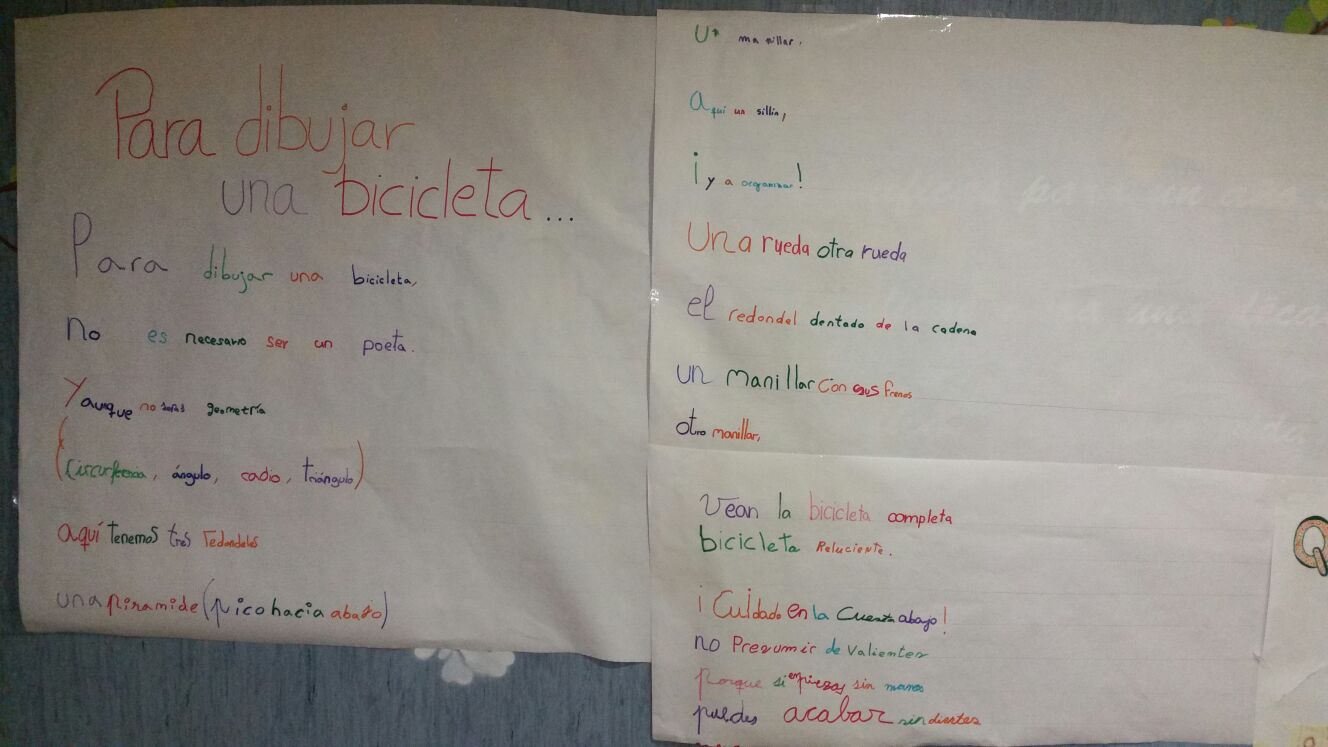 Para dibujar
una bicicleta...
Para dibujar una bicicleta,
no es necesario ser un poeta.
Y aunque no sepas geometría
(circunferencia, ángulo, radio, triángulo)
aquí tenemos tres redondeles
una piramide (pico hacia abajo)
Un manillar.
Aqui un sillín,
¡y a organizar!
Una rueda otra rueda
el redondel dentado de la cadena
un manillar con sus frenos
otro manillar,
Vean la bicicleta completa
bicicleta Reluciente.
¡Cuidado en la Cuesta abajo!
no Presumir de valientes
porque si empiezas sin manos
puedes acabar sin dientes